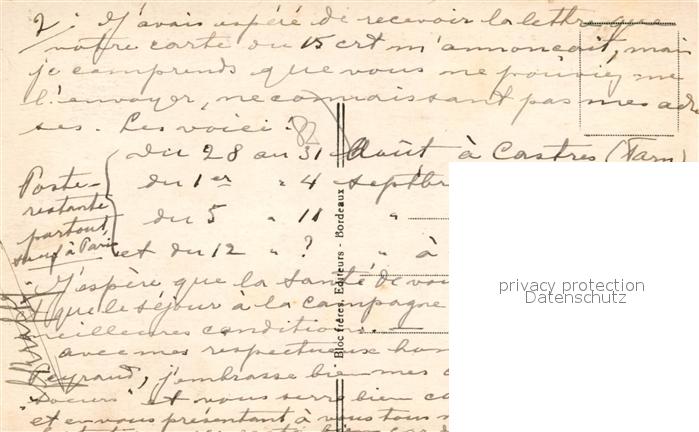 2/. J'avais espéré de recevoir la lettre que
votre carte du 15 crt m'annonçait, mais
je comprends que vous ne pouviez me
l'envoyer, ne connaissant pas mes adres
ses. Les voici :
du 28 au 31 Août à Castres (Tarn)
du 1er " 4 Septbre
du 5 " 11 "
et du 12 " ? " à
Poste-
restante
partout,
sauf à Paris
J'espère que la santé de vou
que le séjour à la campagne
meilleures conditions. —
avec mes respectueux hom
Peyraud, j'embrasse bien mes
soeurs et vous serre bien
et en vous présentant à vous tous
Bloc frères, Editeurs - Bordeaux
privacy protection
Datenschutz